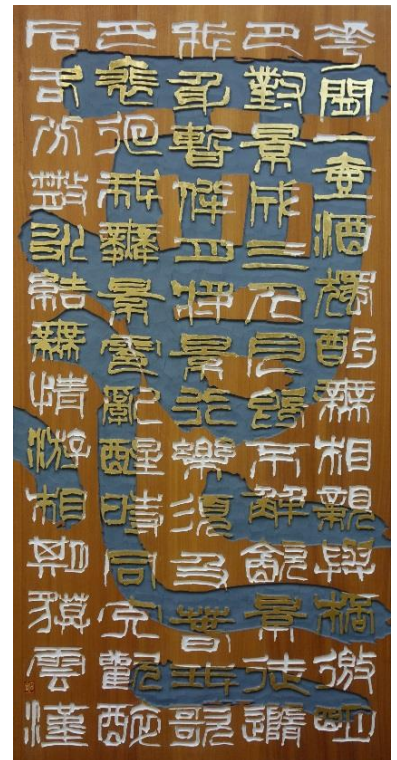 花閒一壺酒獨酌無相親舉桮邀明
月對景成三人月既不解飲景徒隨
我身暫伴月將景行樂須及春我歌
月裴徊我舞景零亂醒時同交歡醉
后各分散永結無情游相期邈雲漢